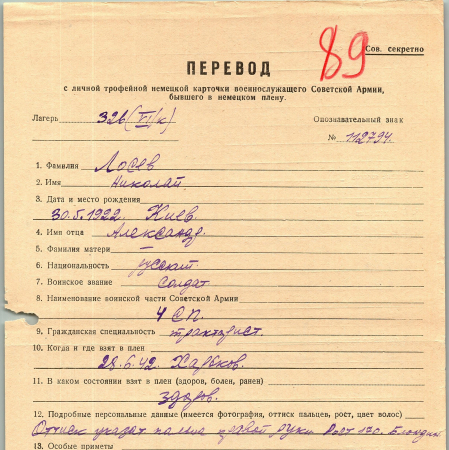 89
Сов. секретно
ПЕРЕВОД
с личной трофейной немецкой карточки военнослужащего Советской Армии,
бывшего в немецком плену.
Лагерь 326 (VI/к) Опознавательный знак
№ 112794.
1. Фамилия Лосев
2. Имя Николай
3. Дата и место рождения
30.5.1922. Киев.
4. Имя отца Александр.
5. Фамилия матери —
6. Национальность русский
7. Воинское звание солдат
8. Наименование воинской части Советской Армии
4 СП.
9. Гражданская специальность тракторист.
10. Когда и где взят в плен
28.6.42. Харьков.
11. В каком состоянии взят в плен (здоров, болен, ранен)
здоров.
12. Подробные персональные данные (имеется фотография, оттиск пальцев, рост, цвет волос)
Оттиск указат пальца правой руки Рост 170. Блондин
13. Особые приметы